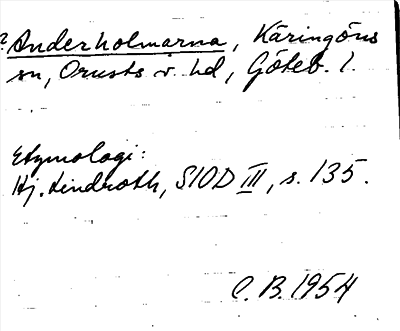 ? Anderholmarna, Käringöns
sn, Orusts v. hd, Göteb. l.
Etymologi:
Hj. Lindroth, SIOD III, s. 135.
C. B. 1954